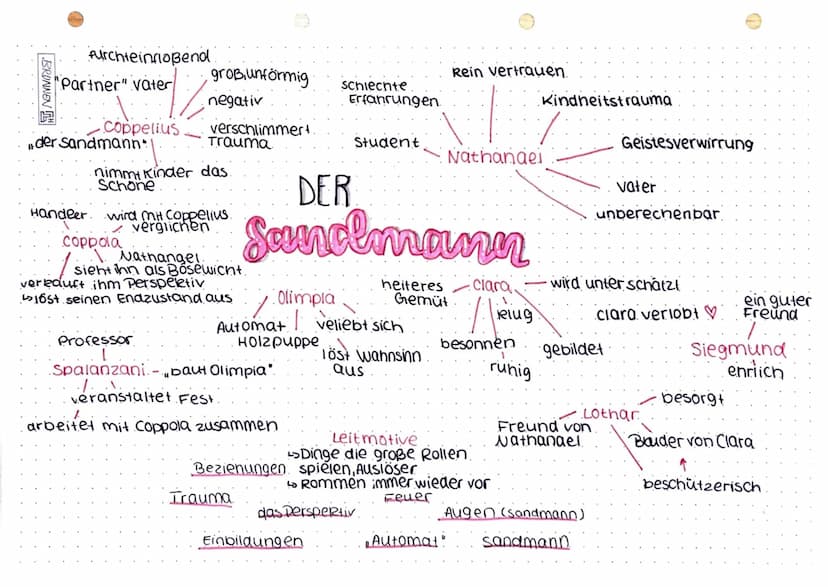 BRUNNEN
furchteinflößend
"Partner" Vater
groß, unförmig
negativ
Coppelius
verschlimmert
Trauma
„der Sandmann"
nimmt Kinder das
Schöne
Rein Vertrauen
schlechte
Erfahrungen
Kindheitstrauma
Student
Nathanael
Geistesverwirrung
Vater
unberechenbar
DER
Sandmann
Händler
wird mit Coppelius
verglichen
Coppola
Nathanael
sieht ihn als Bösewicht
verkauft ihm Perspektiv
↳ löst seinen Endzustand aus
Olimpia
Automat
Holzpuppe
veliebt sich
löst Wahnsinn
aus
heiteres
Gemüt
Clara
wird unterschätzt
klug
besonnen
gebildet
ruhig
Clara verlobt ♡
ein guter
Freund
Siegmund
ehrlich
Professor
Spalanzani - „baut Olimpia"
veranstaltet Fest
arbeitet mit Coppola zusammen
besorgt
Lothar
Freund von
Nathanael
Bruder von Clara
beschützerisch
Leitmotive
↳ Dinge die große Rollen
spielen, Auslöser
↳ kommen immer wieder vor
Beziehungen
Trauma
Feuer
das Perspektiv
Augen (Sandmann)
Einbildungen
„Automat"
Sandmann